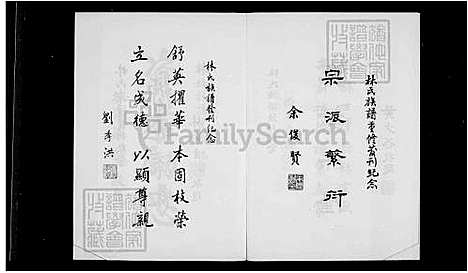 林氏族譜重修發刊紀念
宗派繁衍
余俊賢
林氏族譜發刊紀念
舒英擢華　本固枝榮
立名成德　以顯尊親
劉季洪
FamilySearch